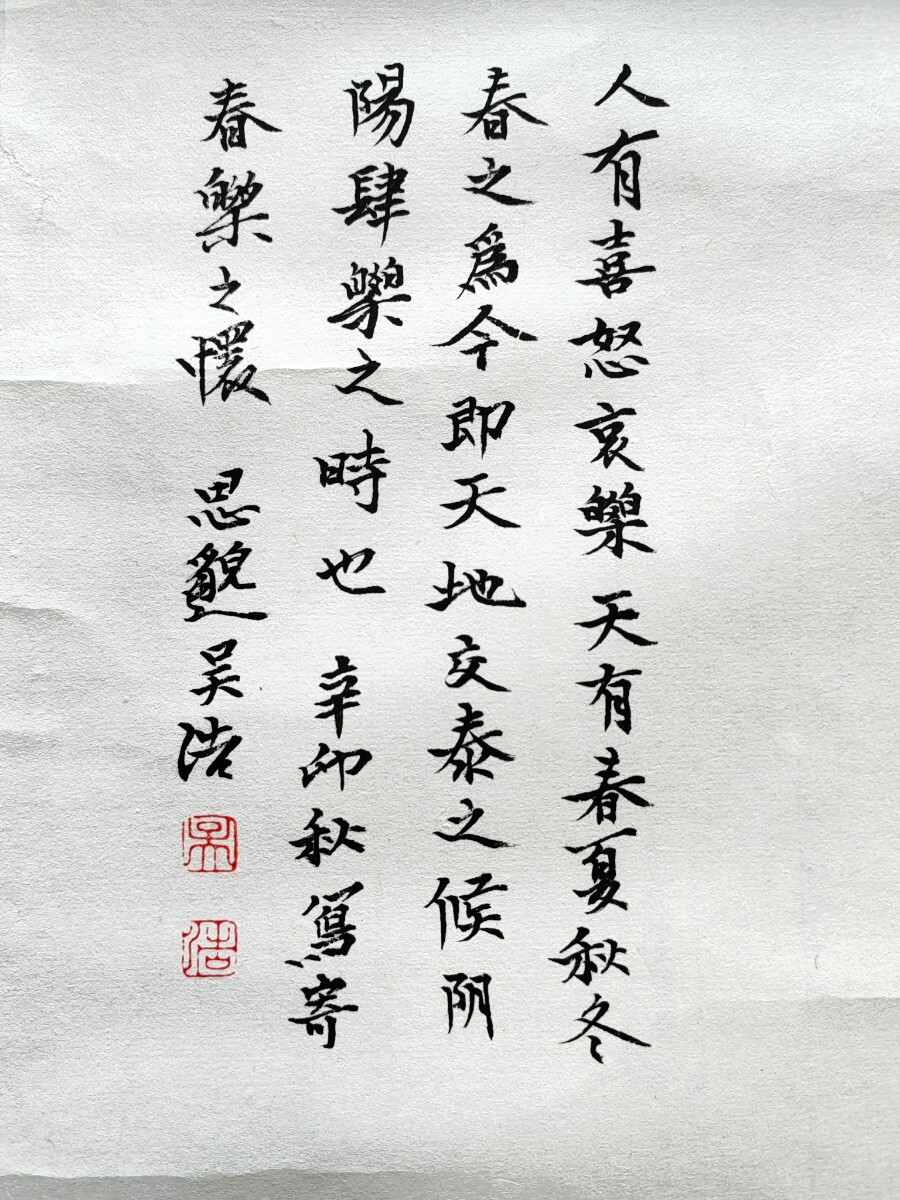 人有喜怒哀樂天有春夏秋冬
春之爲今即天地交泰之候阴
陽肆樂之時也 辛卯秋寫寄
春樂之懷 思邈吴浩
吴
浩